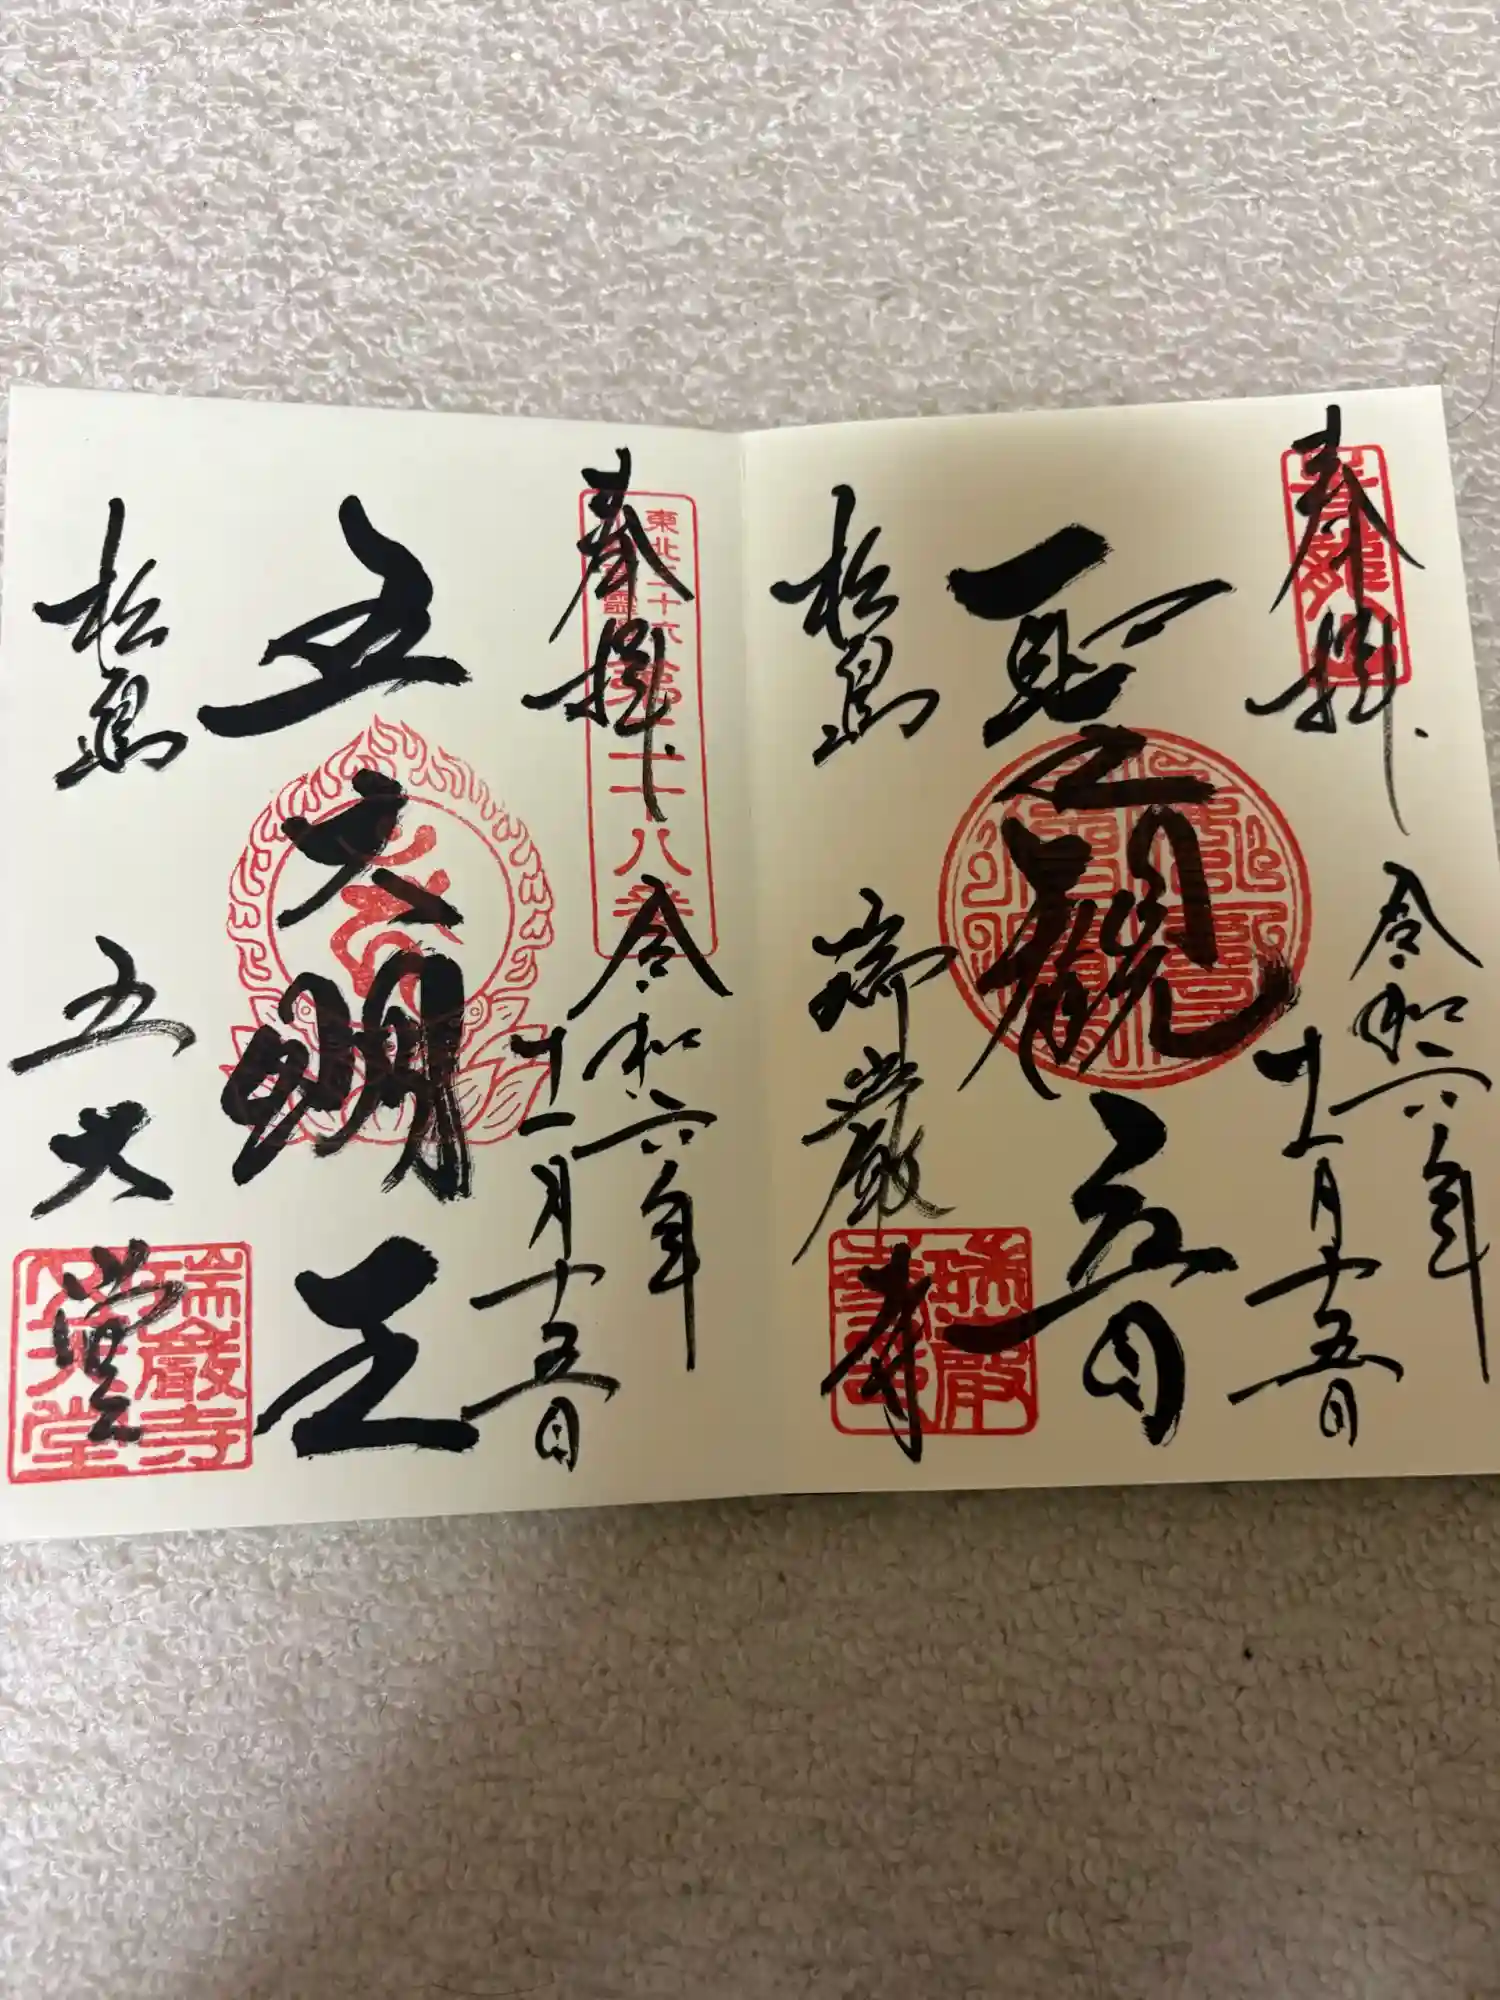 奉拝
令和六年
十一月十五日
聖観音
松島
瑞巌寺
奉拝
東北三十六
第二十八番
令和六年
十一月十五日
五大明王
松島
五大堂
瑞巌寺
五大堂